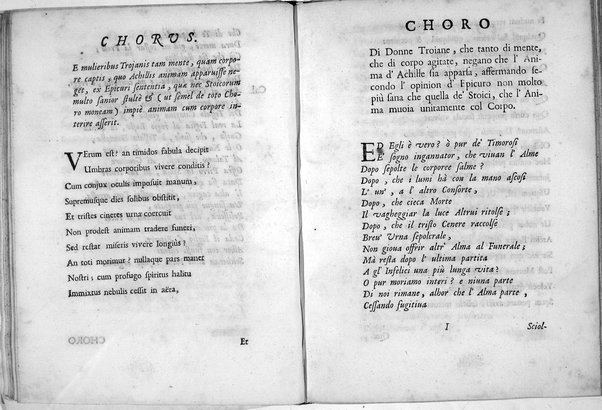 CHORUS.
E mulieribus Trojanis tam mente, quam corpo-
re captis, quo Achillis animam apparuisse ne-
get, ex Epicuri sententia, quæ nec Stoicorum
multo sanior stultè & (ut semel de toto Cho-
ro moneam) impiè animam cum corpore in-
terire asserit.
VErum est? an timidos fabula decipit
Umbras corporibus vivere conditis?
Cum conjux oculis imposuit manum,
Supremusque dies solibus obstitit,
Et tristes cineres urna coercuit
Non prodest animam tradere funeri,
Sed restat miseris vivere longius?
An toti morimur? nullaque pars manet
Nostri; cum profugo spiritus halitu
Immixtus nebulis cessit in aëra,
Et
CHORO
Di Donne Troiane, che tanto di mente,
che di corpo agitate, negano che l' Ani-
ma d' Achille sia apparsa, affermando se-
condo l' opinion d' Epicuro non molto
più sana che quella de' Stoici, che l' Ani-
ma muoia unitamente col Corpo.
ED Egli è vero? ò pur de' Timorosi
E' sogno ingannator, che viuan l' Alme
Dopo sepolte le corporee salme?
Dopo, che i lumi hà con la mano ascosi
L' un', a l' altro Consorte,
Dopo, che cieca Morte
Il vagheggiar la luce Altrui ritolse;
Dopo, che il tristo Cenere raccolse
Breu' Urna sepolcrale,
Non gioua offrir altr' Alma al Funerale;
Mà resta dopo l' ultima partita
A gl' Infelici una più lunga vita?
O pur moriamo interi? e niuna parte
Di noi rimane, alhor che l' Alma parte,
Cessando fugitiua
I
Sciol-